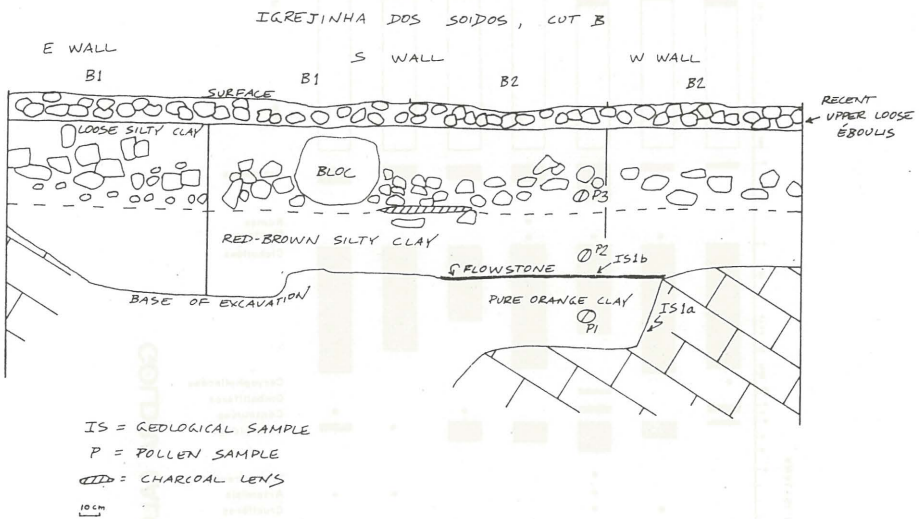 IGREJINHA DOS SOIDOS, CUT B
E WALL
S WALL
W WALL
B1
B1
B2
B2
SURFACE
RECENT
UPPER LOOSE
ÉBOULIS
LOOSE SILTY CLAY
BLOC
P3
RED-BROWN SILTY CLAY
P2
IS1b
FLOWSTONE
BASE OF EXCAVATION
PURE ORANGE CLAY
P1
IS1a
IS = GEOLOGICAL SAMPLE
P = POLLEN SAMPLE
= CHARCOAL LENS
10 cm